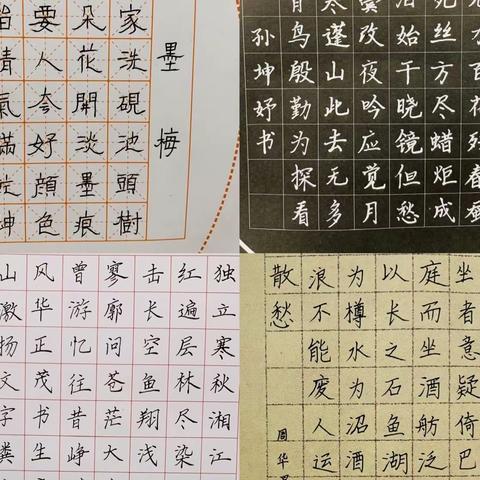 墨梅
家洗硯池頭樹
朵花開淡墨痕
要人夸好顔色
氣滿乾坤
力百花残春蚕
死丝方尽蜡炬成
泪始干晓镜但愁
鬓改夜吟应觉月
寒蓬山此去无多
青鸟殷勤为探看
孙坤妤书
独立寒秋湘江
红遍层林尽染
击长空鱼翔浅
寥廓问苍茫大
曾游忆往昔峥
风华正茂书生
山激扬文字粪
坐者意疑倚巴
庭而坐酒舫泛
以长之石鱼湖
为樽水为沼酒
浪不能废人运
散愁
周华